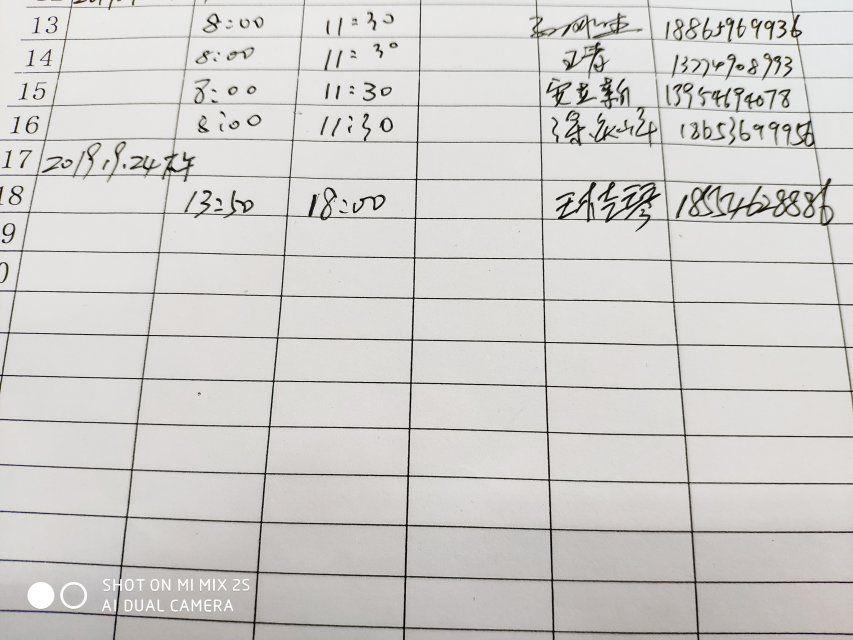 13 8:00 11:30 18865969936
14 8:00 11:30 王青 13774908993
15 8:00 11:30 安立新 13954694078
16 8:00 11:30 18653699956
17 2019.9.24下午
18 13:50 18:00 18554628886
9
0
SHOT ON MI MIX 2S
AI DUAL CAMERA